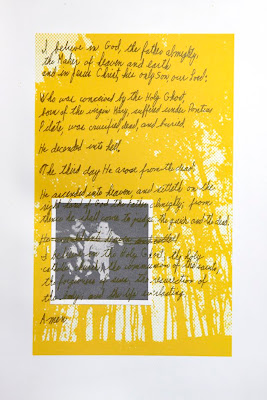 I believe in God, the father almighty,
the Maker of heaven and earth
and in Jesus Christ, his only Son our Lord:
Who was conceived by the Holy Ghost
born of the virgin Mary, suffered under Pontius
Pilate, was crucified, dead, and buried.
He decended into hell.
The third day He arose from the dead.
He ascended into heaven and sitteth on the
right hand of God the Father almighty; from
thence he shall come to judge the quick and the dead.
I believe in the Holy Ghost, the holy
catholic church, the communion of the saints,
the forgiveness of sins, the resurrection of
the body, and the life everlasting.
Amen